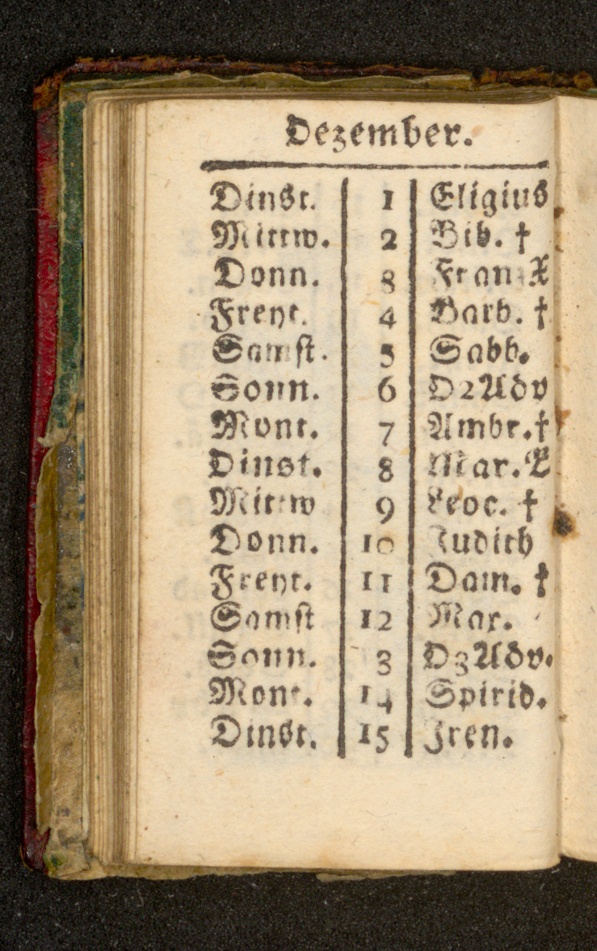 Dezember.
Dinst. 1 Eligius
Mittw. 2 Bib. †
Donn. 3 Fran X
Freyt. 4 Barb. †
Samst. 5 Sabb.
Sonn. 6 D2Adv
Mont. 7 Ambr. †
Dinst. 8 Mar. E
Mittw 9 Leoc. †
Donn. 10 Judith
Freyt. 11 Dam. †
Samst 12 Max.
Sonn. 3 D3Adv.
Mont. 14 Spirid.
Dinst. 15 Iren.